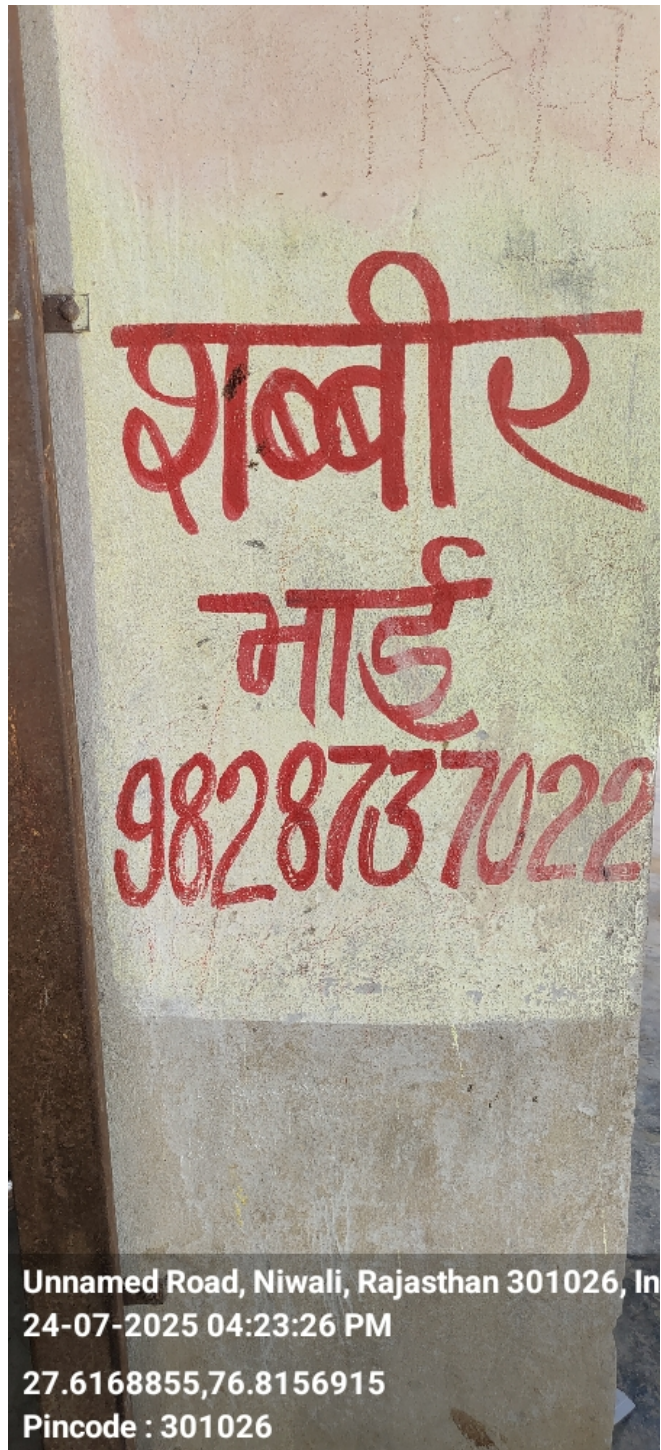 शब्बीर
भाई
9828737022
Unnamed Road, Niwali, Rajasthan 301026, In
24-07-2025 04:23:26 PM
27.6168855,76.8156915
Pincode : 301026